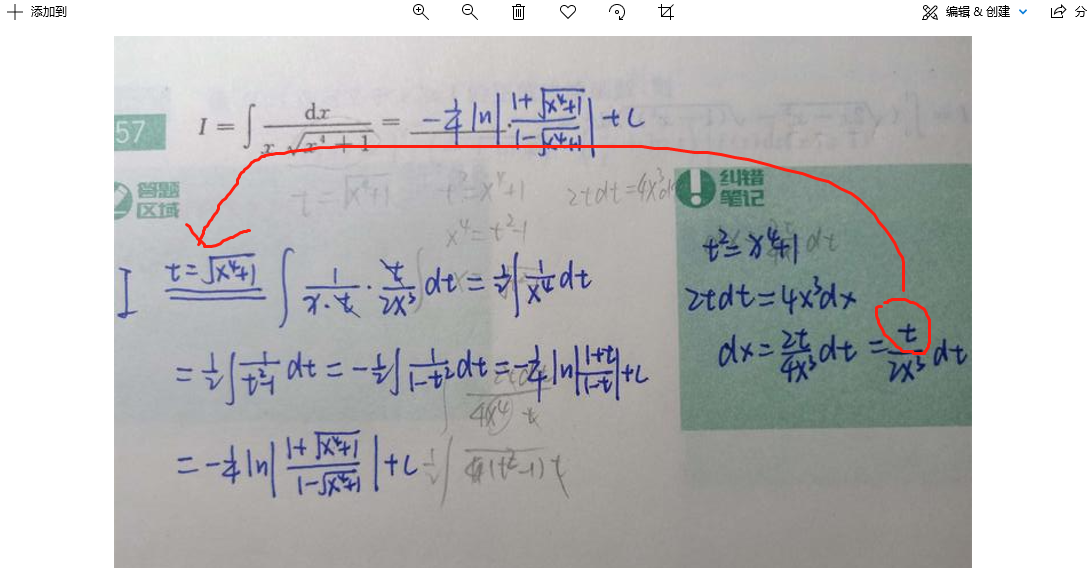 添加到
编辑 & 创建
分
57
I = ∫ dx / (x √(x⁴ + 1)) = -1/4 ln|(1+√(x⁴+1))/(1-√(x⁴+1))| + C
答题
区域
t = √(x⁴+1) t² = x⁴+1 2tdt = 4x³d
x⁴ = t²-1
纠错
笔记
t² = x⁴+1
2tdt = 4x³dx
dx = 2t/4x³ dt = t/2x³ dt
I t=√(x⁴+1) ∫ 1/(x·t) · t/2x³ dt = 1/2 ∫ 1/x⁴ dt
= 1/2 ∫ 1/(t²-1) dt = -1/2 ∫ 1/(1-t²) dt = -1/4 ln|(1+t)/(1-t)| + C
= -1/4 ln|(1+√(x⁴+1))/(1-√(x⁴+1))| + C